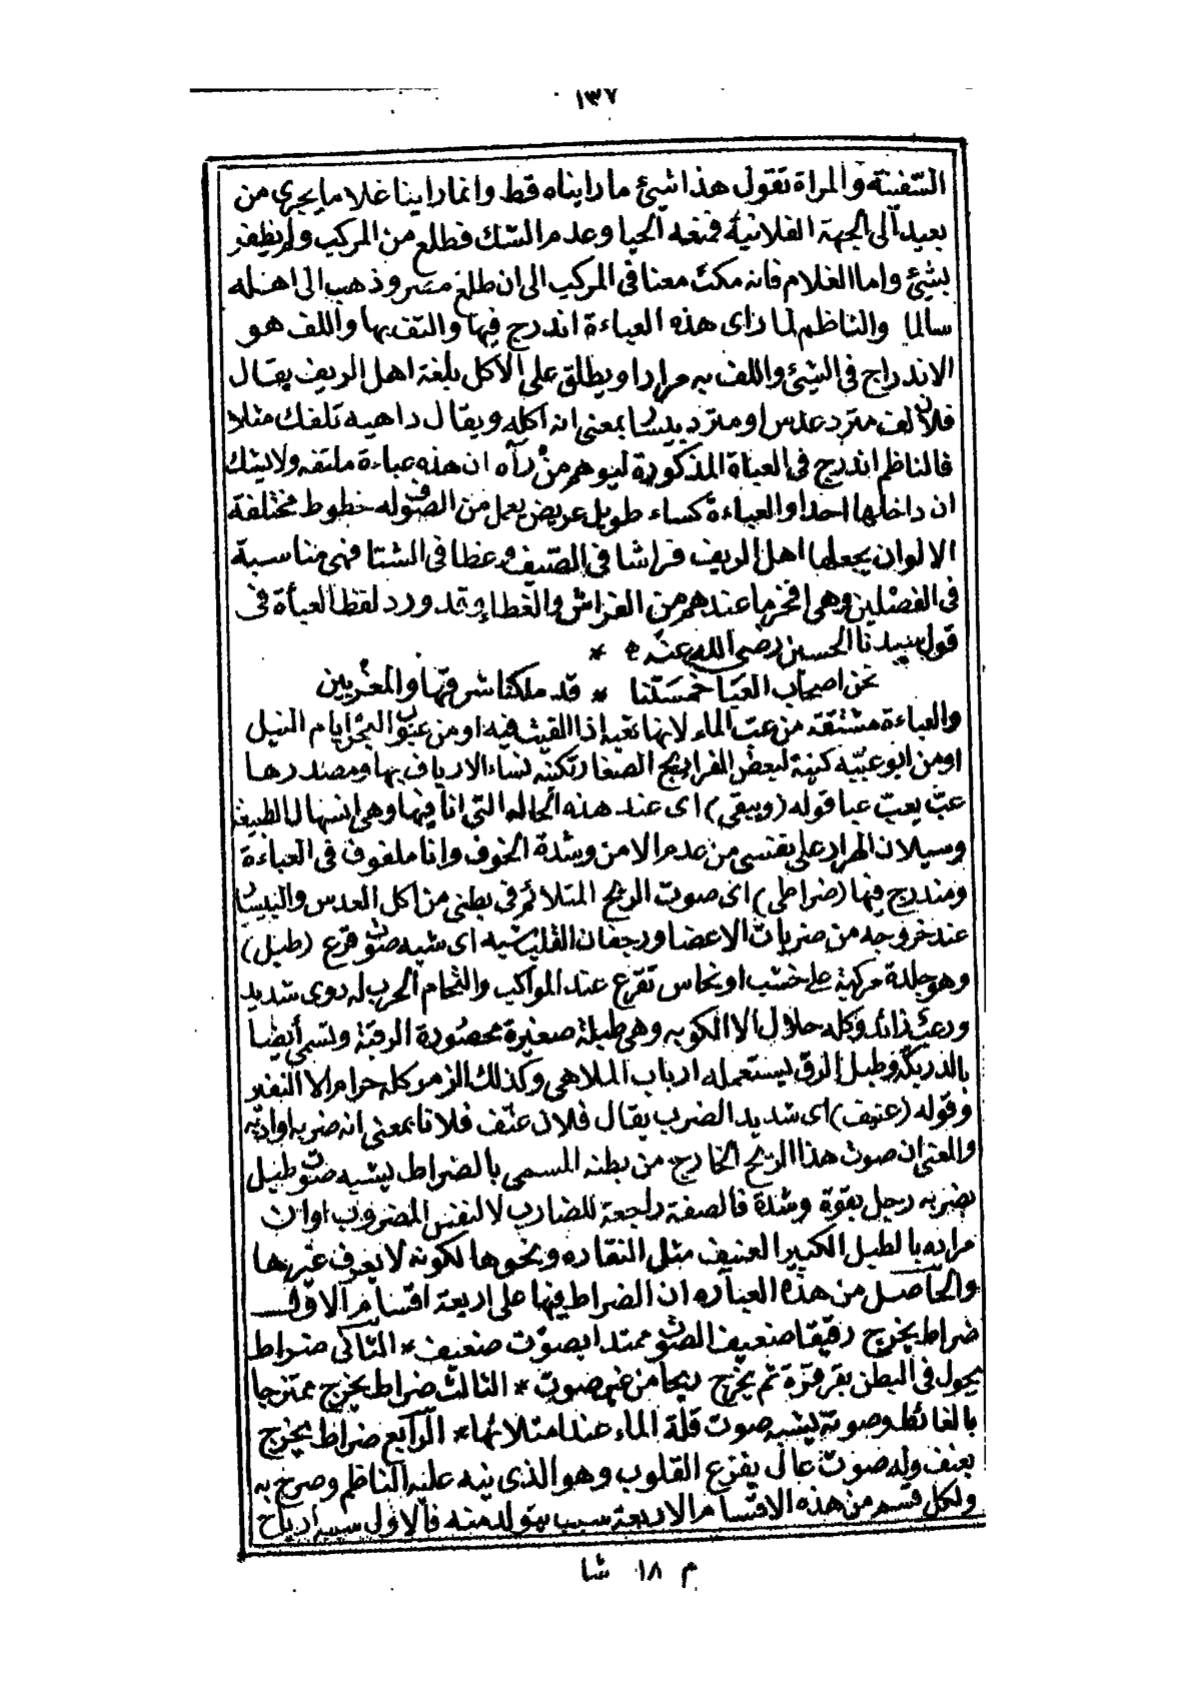 ١٣٧
السفينة والمراة تقول هذا شيئ ما رايناه قط وانما راينا غلاما يجرى من
بعيد الى الجهة الفلانية فمنعه الحيا وعدم الشك فطلع من المركب ولم يظفر
بشيئ واما الغلام فانه مكث معنا فى المركب الى ان طلع مصر وذهب الى اهله
سالما والناظم لما راى هذه العباءة اندرج فيها والتف بها واللف هو
الاندراج فى الشيئ واللف به مرارا ويطلق على الاكل بلغة اهل الريف يقال
فلان لف مترد عدس او مترد بيسا بمعنى انه اكله ويقال داهيه تلفك مثلا
فالناظم اندرج فى العباة المذكورة ليوهم من رآه ان هذه عباءة ملتفه ولا يشك
ان داخلها احدا والعباءة كساء طويل عريض يعمل من الصوف له خطوط مختلفة
الالوان يجعلها اهل الريف فراشا فى الصيف وغطا فى الشتا فهى مناسبة
فى الفصلين وهى افخر ما عندهم من الفراش والغطا وقد ورد لفظ العباة فى
قول سيدنا الحسين رضى الله عنه *
نحن اصحاب العبا خمستنا * قد ملكنا شرقها والمغربين
والعباءة مشتقة من عب الماء لانها تعبه اذا القيت فيه او من عبوب البحر ايام النيل
او من ابو عبيه كنية لبعض الفراريج الصغار تكنيه نساء الارياف بها ومصدرها
عبّ يعبّ عبا قوله (ويبقى) اى عند هذه الحاله التى انا فيها وهى اسهال الطبيعة
وسيلان الهرار على نفسى من عدم الامن وشدة الخوف وانا ملفوف فى العباءة
ومندرج فيها (ضراطى) اى صوت الريح المتلائم فى بطنى من اكل العدس والبيسا
عند خروجه من ضربات الاعضا ورجفان القلب شبه اى شبه صوت قرع (طبل)
وهو جلدة مركبة على خشب او نحاس تقرع عند المواكب والتحام الحرب له دوى شديد
ورعب زائد وكله حلال الا الكوبه وهى طبلة صغيرة محصورة الرقبة وتسمى أيضا
بالدربكه وطبل الرق يستعمله ارباب الملاهى وكذلك الزمر كله حرام الا النفير
وقوله (عنيف) اى شديد الضرب يقال فلان عنف فلانا بمعنى انه ضربه او اذيه
والمعنى ان صوت هذا الريح الخارج من بطنه المسمى بالضراط يشبه صوت طبل
يضربه رجل بقوة وشدة فالصفة راجعة للضارب لا لنفس المضروب او ان
مراده بالطبل الكبير العنيف مثل النقاره ونحوها لكونه لا يعرف غيرها
والحاصل من هذه العباره ان الضراط فيها على اربعة اقسام الاول
ضراط يخرج رقيقا ضعيف الصوت ممتدا بصوت ضعيف * الثانى ضراط
يجول فى البطن بقرقرة ثم يخرج ريحا من غير صوت * الثالث ضراط يخرج ممتزجا
بالغائط وصوته يشبه صوت قلة الماء عند امتلائها * الرابع ضراط يخرج
بعنف وله صوت عال يفزع القلوب وهو الذى نبه عليه الناظم وصرح به
ولكل قسم من هذه الاقسام الاربعة سبب يتولد منه فالاول سببه ارياح
م ١٨ شا